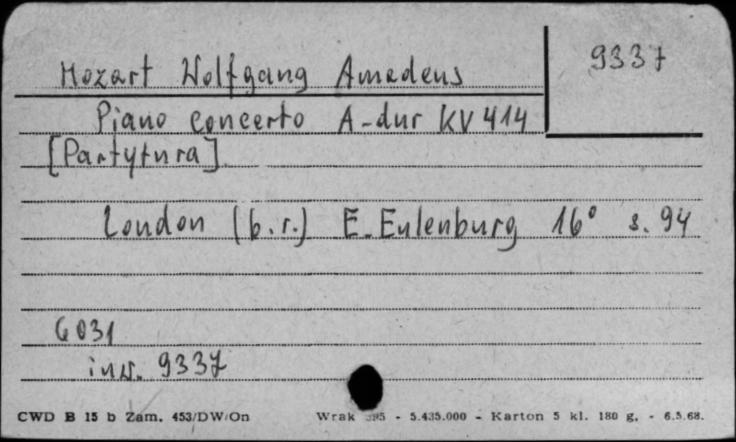 Mozart Wolfgang Amadeus
9337
Piano concerto A-dur KV 414
[Partytura]
London (b.r.) E. Eulenburg 16° s. 94
6031
inw. 9337
CWD B 15 b Zam. 453/DW/On Wrak - 5.435.000 - Karton 5 kl. 180 g. - 6.5.68.